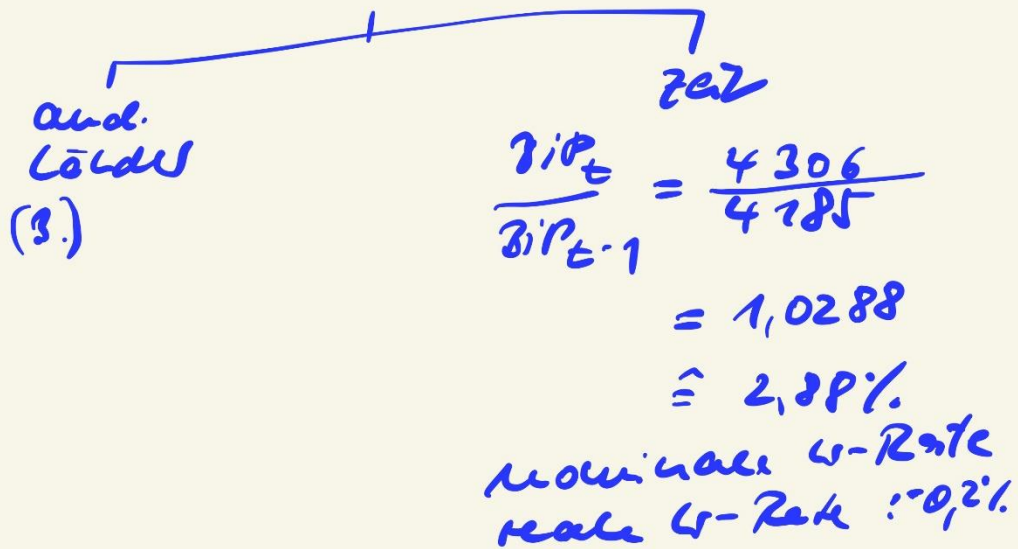 and.
Länder
(3.)
Zeit
BiP_t / BiP_t-1 = 4306 / 4185
= 1,0288
≙ 2,88%
nominale W-Rate
reale W-Rate : -0,2%